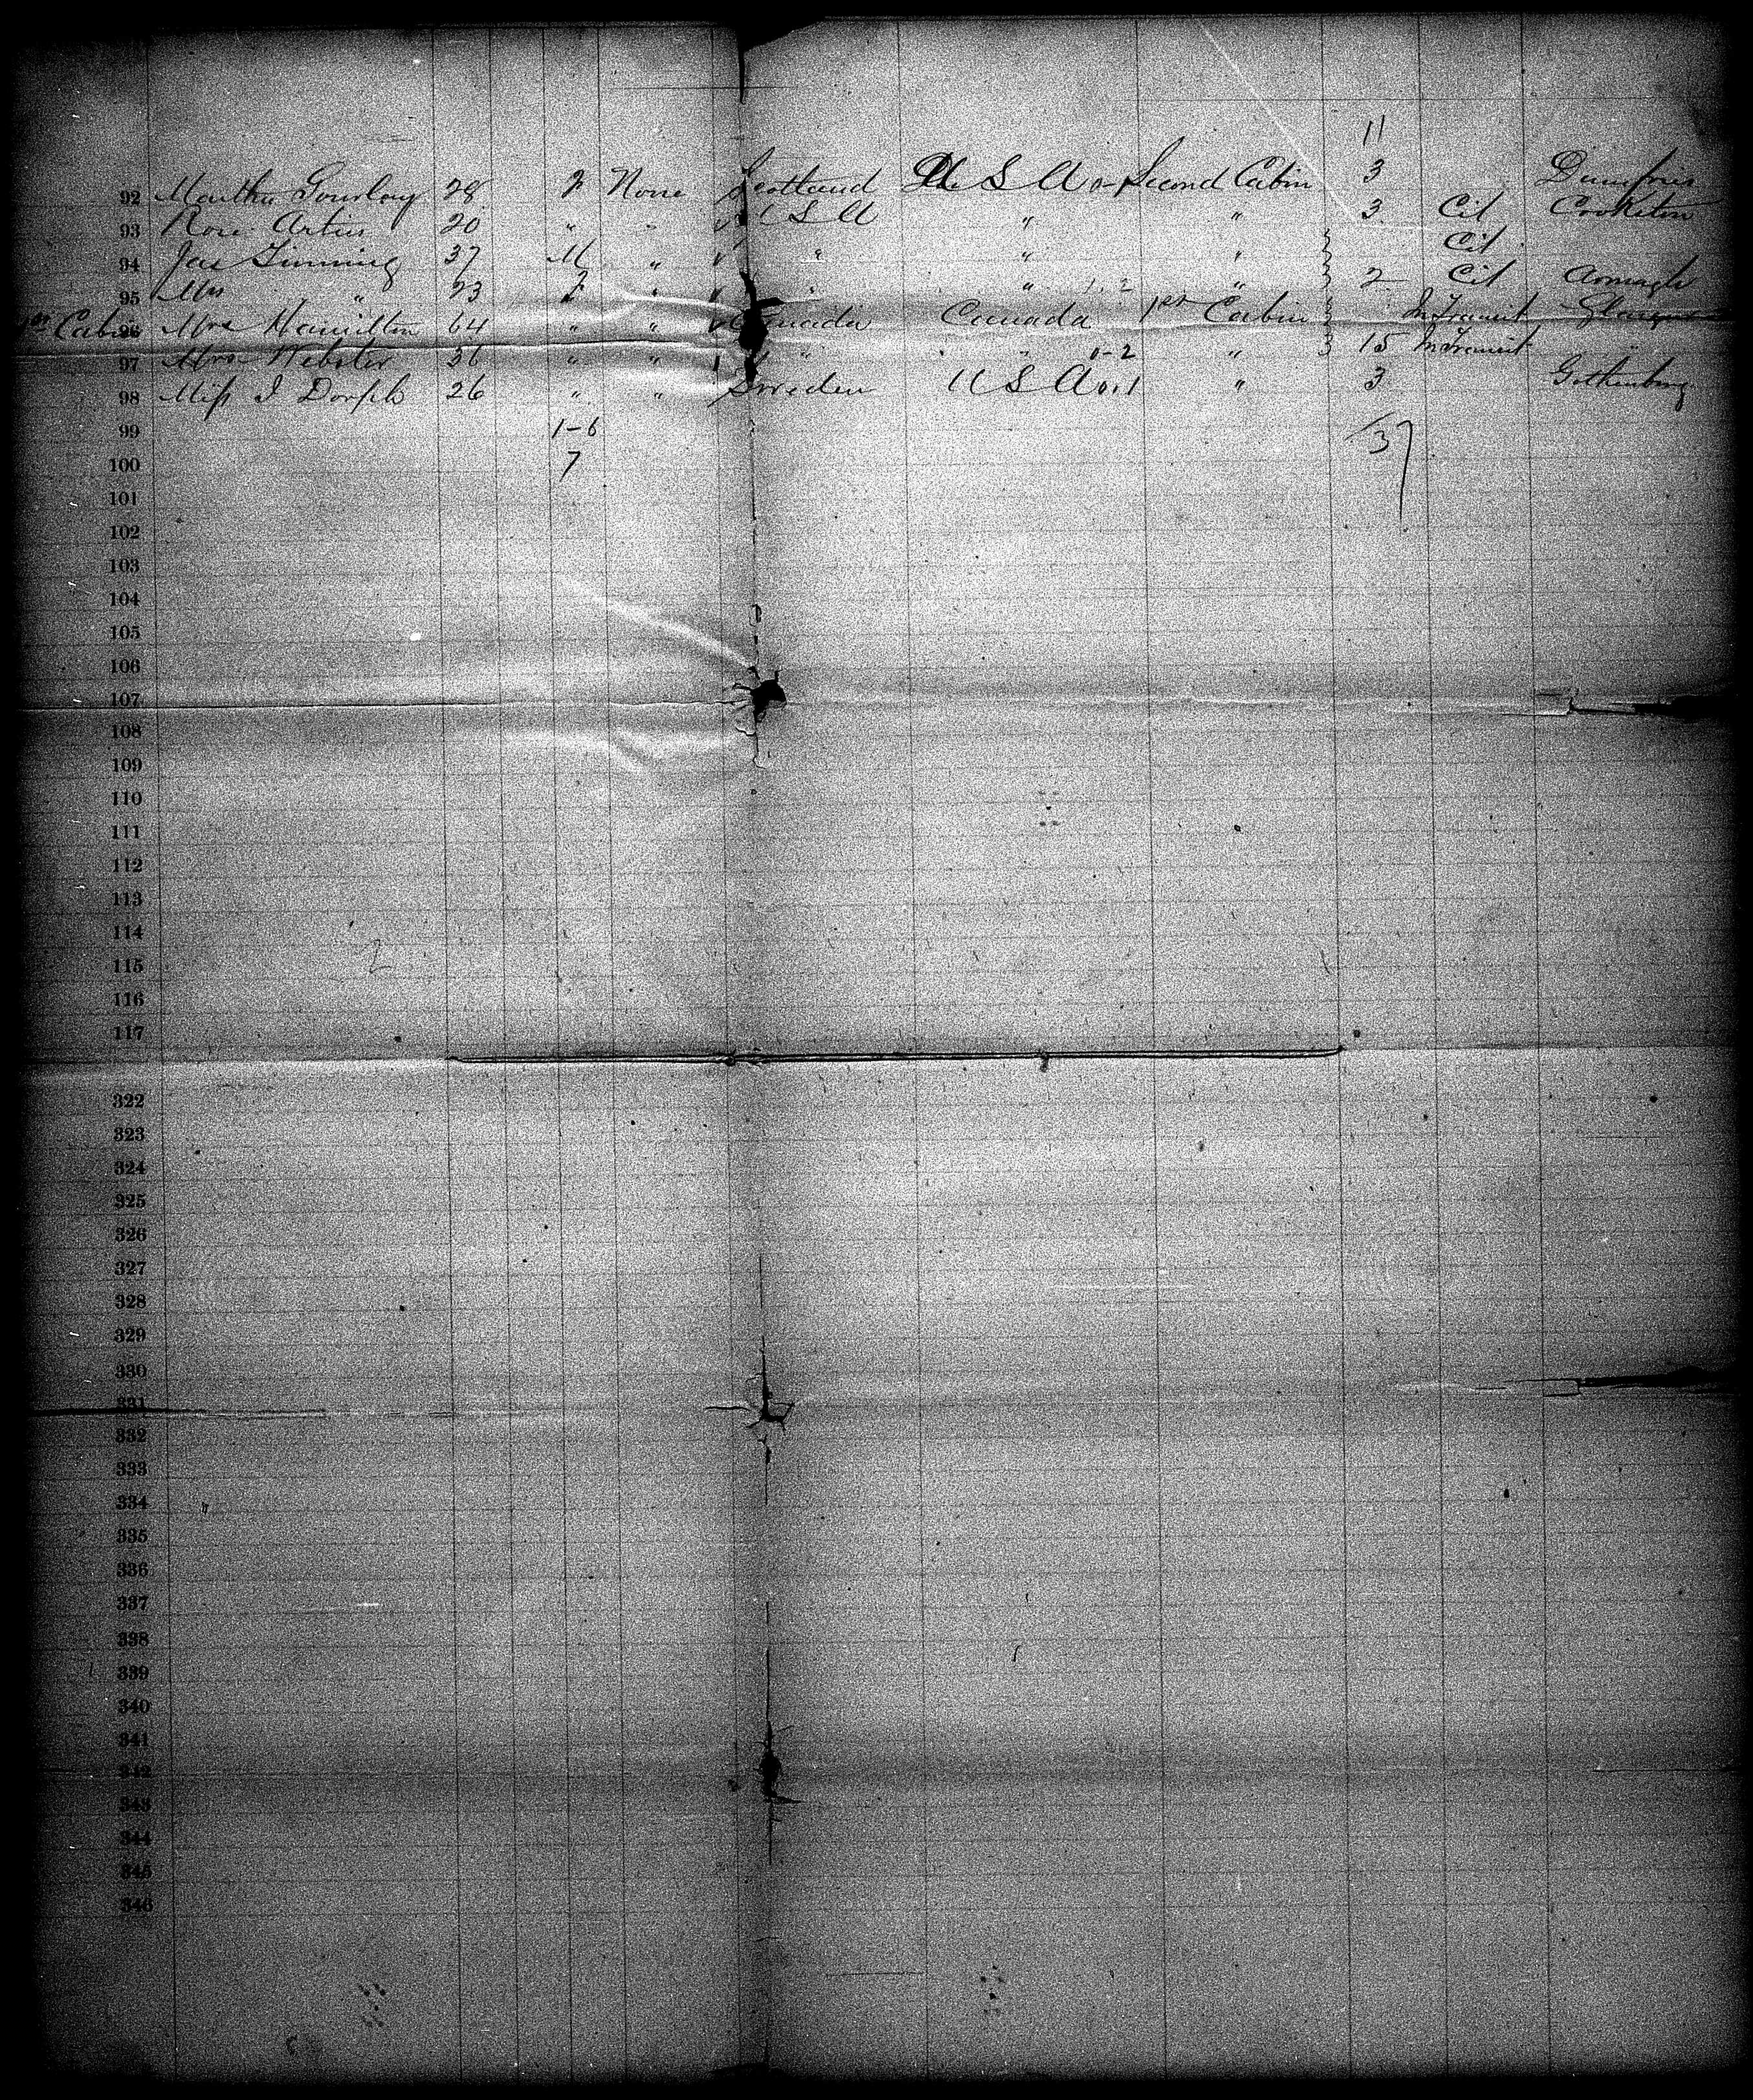 11
92 Martha Gourlay 28 F None Scotland U S A 0-1 Second Cabin 3 Dumfries
93 Rose 20 " " U S A " " 3 Cit Crookston
94 Jas 37 M " " " " Cit
95 Mrs " 23 F " " " 1.2 " 2 Cit Armagh
1st Cabin 96 Mrs Hamilton 64 " " Canada Canada 1st Cabin In Transit Glasgow
97 Mrs Webster 36 " " " " 0-2 " 15 In Transit "
98 Miss I Dorph 26 " " Sweden U S A 0.1 " 3 Gothenburg
99 1-6 37
100 7
101
102
103
104
105
106
107
108
109
110
111
112
113
114
115
116
117
322
323
324
325
326
327
328
329
330
331
332
333
334
335
336
337
338
339
340
341
342
343
344
345
346